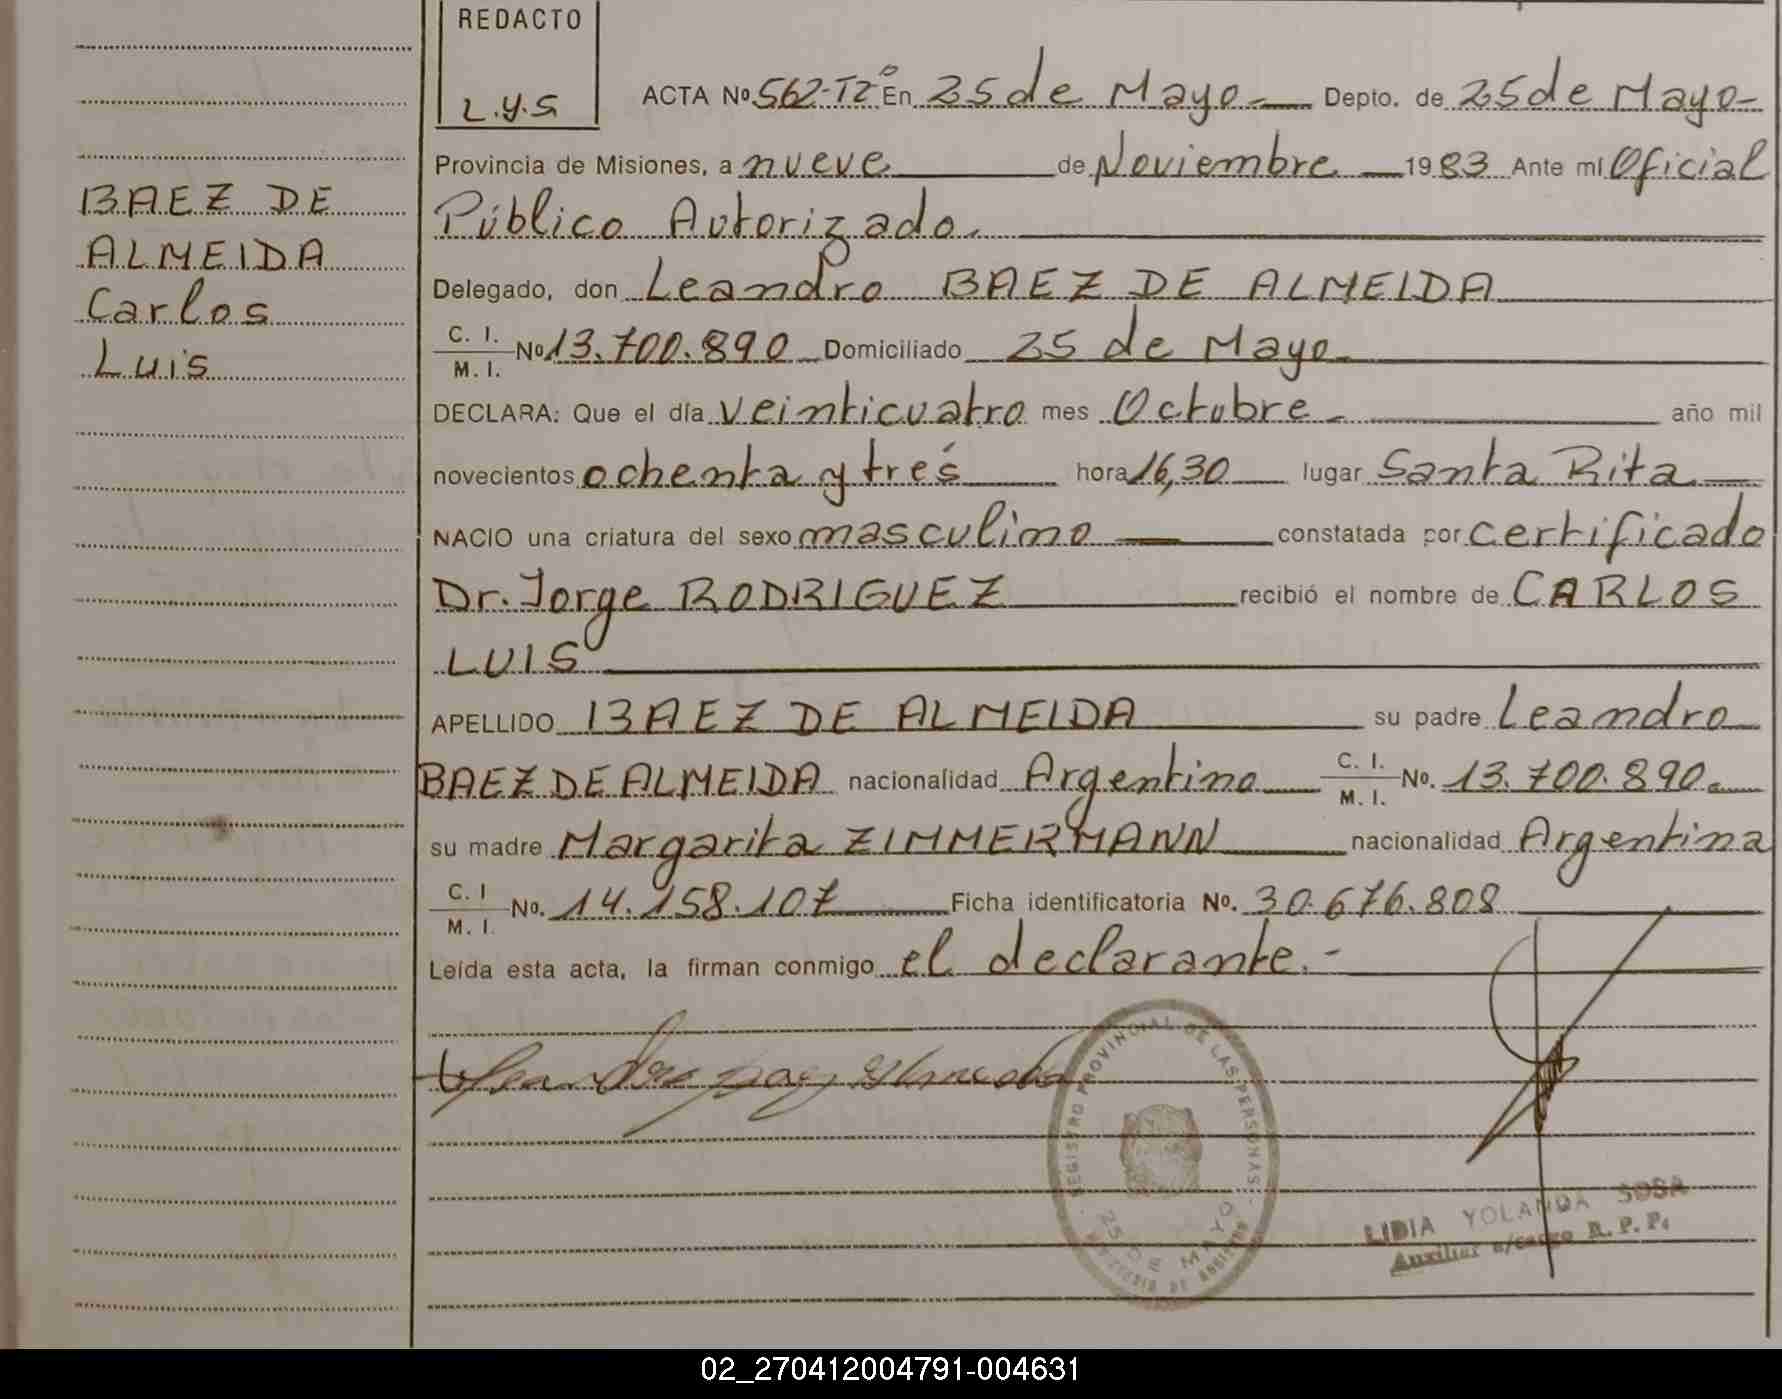 REDACTO
L.Y.S
BAEZ DE
ALMEIDA
Carlos
Luis
ACTA Nº 562-T2º En 25 de Mayo.- Depto. de 25 de Mayo-
Provincia de Misiones, a nueve de Noviembre 1983 Ante mí Oficial
Público Autorizado.
Delegado, don Leandro BAEZ DE ALMEIDA
C. I. / M. I. Nº 13.700.890 Domiciliado 25 de Mayo.
DECLARA: Que el día veinticuatro mes Octubre.- año mil
novecientos ochenta y trés hora 16,30 lugar Santa Rita
NACIO una criatura del sexo masculino constatada por certificado
Dr. Jorge RODRIGUEZ recibió el nombre de CARLOS
LUIS
APELLIDO BAEZ DE ALMEIDA su padre Leandro
BAEZ DE ALMEIDA nacionalidad Argentino C. I. / M. I. Nº. 13.700.890.
su madre Margarita ZIMMERMANN nacionalidad Argentina
C. I / M. I. Nº. 14.158.107 Ficha identificatoria Nº. 30.676.808
Leída esta acta, la firman conmigo el declarante.-
REGISTRO PROVINCIAL DE LAS PERSONAS
25 DE MAYO
LIDIA YOLANDA SOSA
Auxiliar a/cargo R. P. P.
02_270412004791-004631